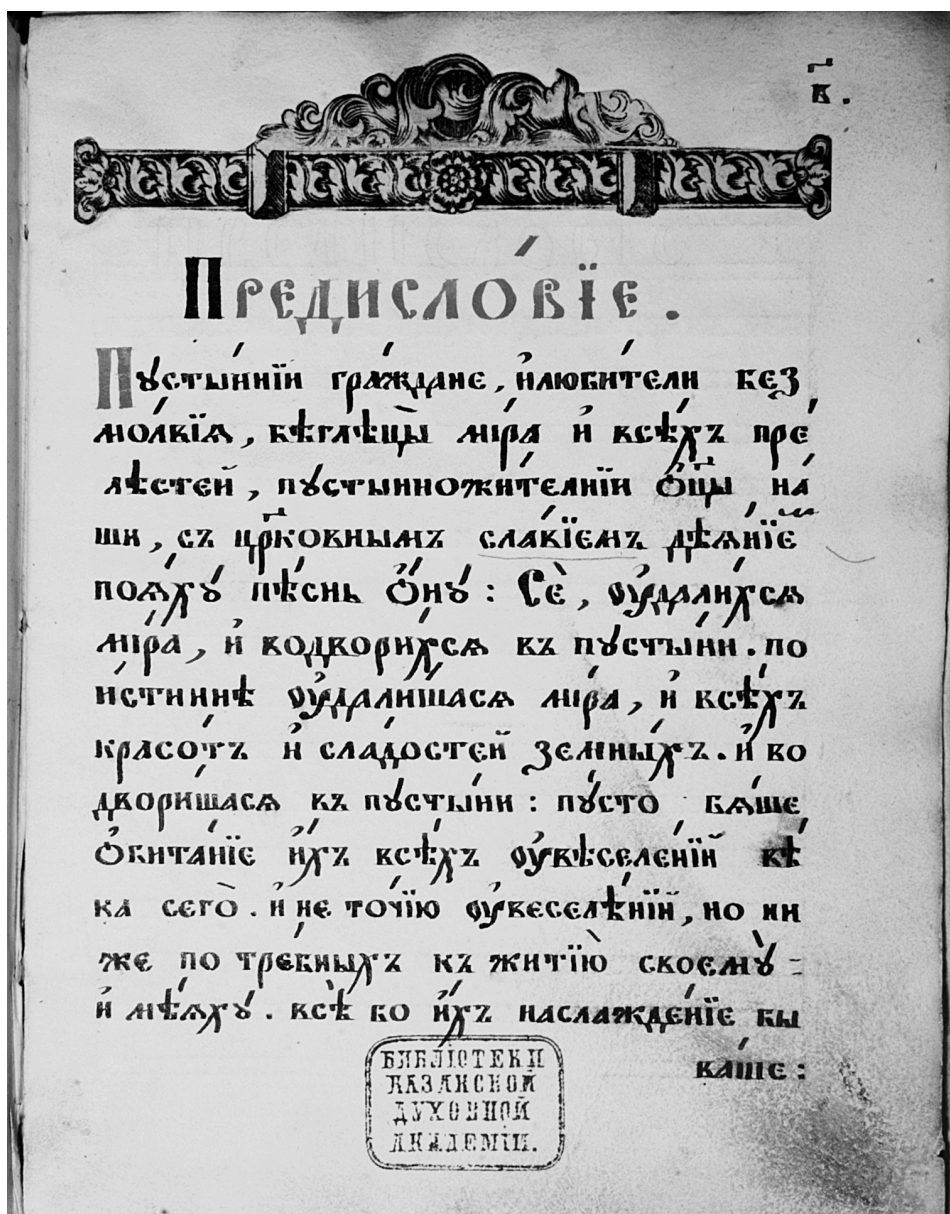 в҃.
Предисло́вїе.
Пꙋсты́ннїи гра́ждане, и҆люби́тели без
мо́лвїѧ, бѣглѣцы̀ мі́ра и҆ всѣ́хъ пре́
лѣстей, пꙋстынножи́телнїи ѻ҆ц҃ы̀ на́
ши, съ цр҃ковнымъ сла́вїемъ дѣѧ́нїе
поѧ́хꙋ пѣ́снь ѻ҆́нꙋ: Сѐ, ᲂу҆дали́хсѧ
мі́ра, и҆ водвори́хсѧ въ пꙋсты́ни. по
и́стиннѣ ᲂу҆дали́шасѧ мі́ра, и҆ всѣ́хъ
красо́тъ и҆ сла́достей земны́хъ. и҆ во
двори́шасѧ въ пꙋсты́ни: пꙋ́сто бѧ́ше
ѻ҆бита́нїе и҆́хъ всѣ́хъ ᲂу҆вѣселе́нїй вѣ́
ка сего̀. и҆ не то́чїю ᲂу҆веселѣ́нїй, но ни
же по тре́бныхъ къ житїю̀ своемꙋ̀
и҆ мѣѧ́хꙋ. всѣ̀ бо и҆́хъ наслажде́нїе бы
ва́ше:
БИБЛІОТЕКИ
КАЗАНСКОЙ
ДУХОВНОЙ
АКАДЕМІИ.